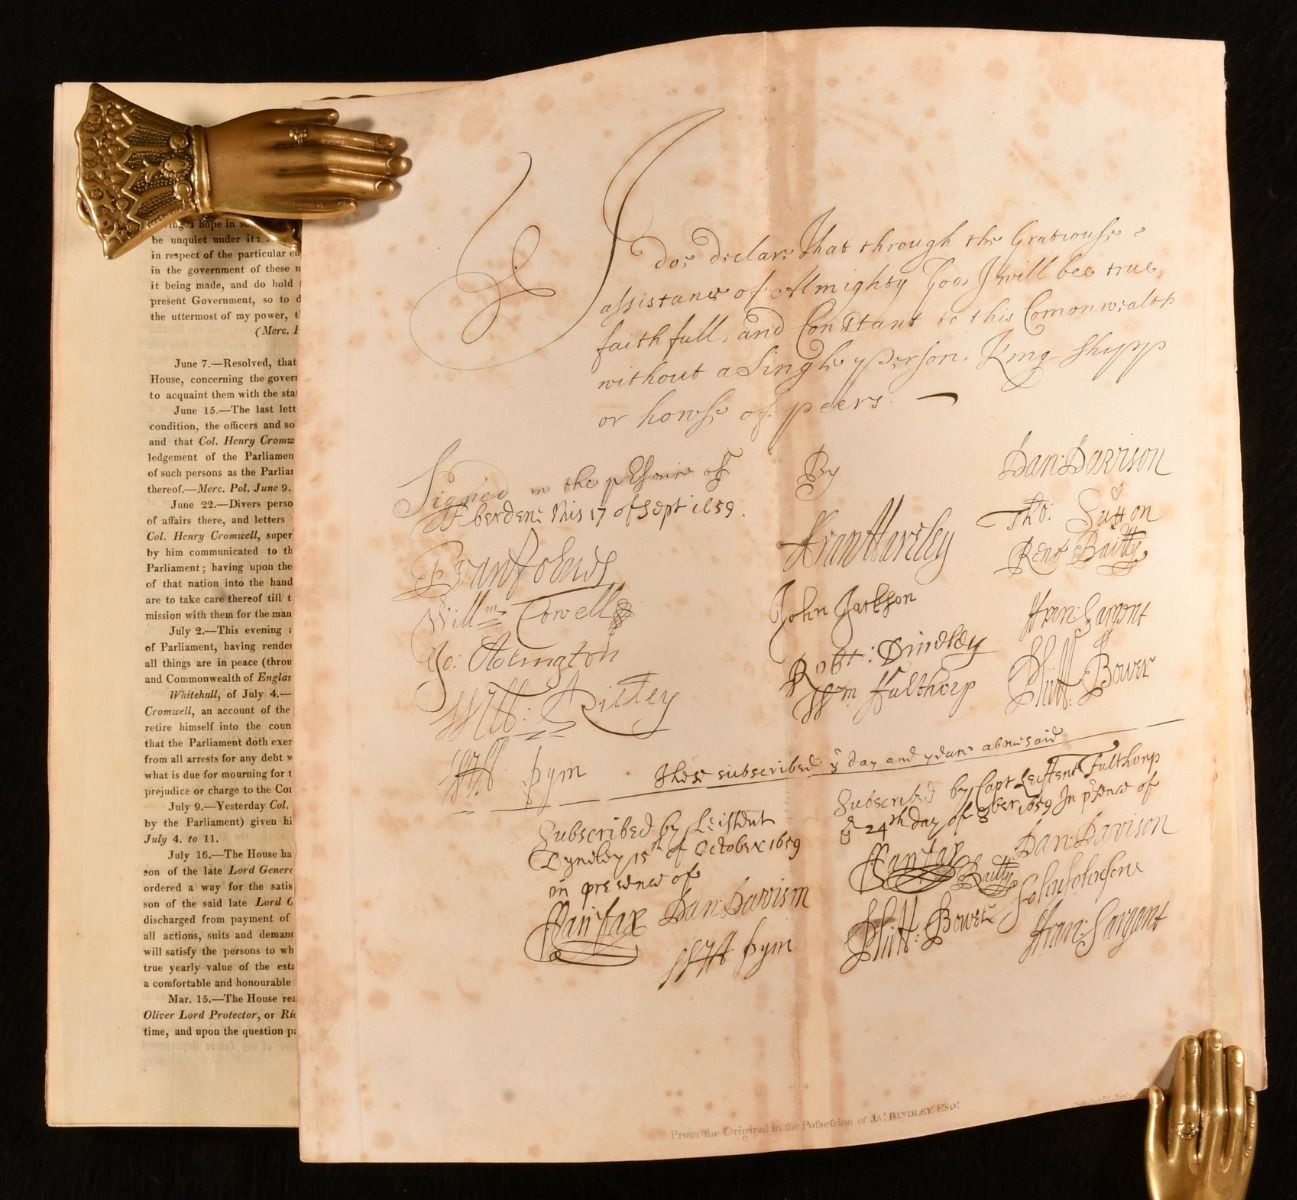 hope in
be unquiet under it:
in respect of the particular
in the government of these
it being made, and do hold
present Government, so to
the uttermost of my power,
(Merc.
June 7.—Resolved, that
House, concerning the
to acquaint them with the
June 15.—The last
condition, the officers and so
and that Col. Henry
ledgement of the
of such persons as the
thereof.—Merc. Pol. June 9.
June 22.—Divers
of affairs there, and letters
Col. Henry Cromwell,
by him communicated to
Parliament; having upon the
of that nation into the
are to take care thereof till
mission with them for the
July 2.—This evening
of Parliament, having
all things are in peace
and Commonwealth of
Whitehall, of July 4.—
Cromwell, an account of the
retire himself into the
that the Parliament doth
from all arrests for any debt
what is due for mourning for
prejudice or charge to the
July 9.—Yesterday Col.
by the Parliament) given
July 4. to 11.
July 16.—The House
son of the late Lord
ordered a way for the
son of the said late Lord
discharged from payment of
all actions, suits and
will satisfy the persons to
true yearly value of the
a comfortable and honourable
Mar. 15.—The House
Oliver Lord Protector, or
time, and upon the question
I doe declare that through the Gratiouse
assistance of Allmighty God I will bee true,
faithfull, and Constant to this Commonwealth
without a Single person, King-shipp
or house of peers.
Signed in the presence of
this 17 of Sept 1659.
By
Dan: Davison
Fran Hartley
Tho: Sutton
Will^m Cowell
John Jackson
Fran: Sargent
Robt: Dindley
Wm Fulthorp
Phill: Bower
Pym
These subscribed y^e day and yeare abovesaid
Subscribed by Leistent
Dyndley 15^th of October 1659
in presence of
Fairfax Dan Davison
Pym
Subscribed by Capt Leiftent Fulthorp
y^e 24^th day of 8ber 1659 In p^rsence of
Fairfax Dan Davison
Phill: Bower
Fran: Sargent
From the Original in the Possession of Ja^s BINDLEY, ESQ^r